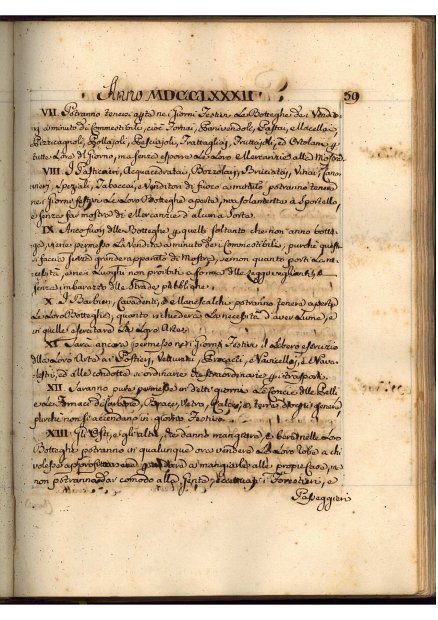 Anno MDCCLXXXII
59
VII. Potranno tenere aperte ne i Giorni Festivi Le Botteghe de i Vendito-
ri a minuto de Commestibili, cioè Fornai, Panivendoli, Pastai, Macellai,
Pizzicagnoli, Pollajoli, Pesciajoli, Treccoli, ed Ortolani p
tutte L'ore di Giorno, ma senza esporre Le Loro Mercanzie alle Mostre.
VIII. I Pasticcieri, Acquacedratai, Brigidai, Vinai, Cano-
vieri, Speziali, Tabaccai, e Venditori di fuoco a minuto potranno tenere
ne i giorni festivi Le Loro Botteghe aperte, ma solamente a Sportello,
e senza far mostre di Mercanzie d'alcuna Sorta.
IX. Anco fuori delle Botteghe p quelli soltanto che non anno botte-
ga, viene permessa La Vendita a minuto de i Commestibili, purchè questa
si faccia senza grande apparato di Mostre, se non quanto porti La ne-
cessità, e ne i Luoghi non proibiti a forma delle Leggi veglianti, e
senza imbarazzo delle Strade pubbliche.
X. I Barbieri, Cavadenti, e Manescalchi potranno tenere aperte
Le Loro Botteghe, quanto richiederà La necessità d'aver Lume, e
in quelle esercitare La Loro Arte.
XI. Sarà ancora permesso ne i giorni Festivi il Libero esercizio
della Loro Arte a i Postieri, Vetturini, Navicellai, e Nava-
lestri, ed alle condotte sì ordinarie che straordinarie p i trasporti.
XII. Saranno pure permesse in detti giorni Le Concie delle Pelli
e Le Fornaci di Carbone, Brace, Vetro, Calce, e terre d'ogni genere
purchè non si accendano in giorno Festivo.
XIII. Gli Osti, e gli altri, che danno mangiare, e bere nelle Loro
Botteghe potranno in qualunque ora vendere Le Loro robe a chi
volesse a mangiarle alle proprie Case, ma
non potranno dar comodo alla Gente, eccettuati i Forestieri, e
Passeggieri